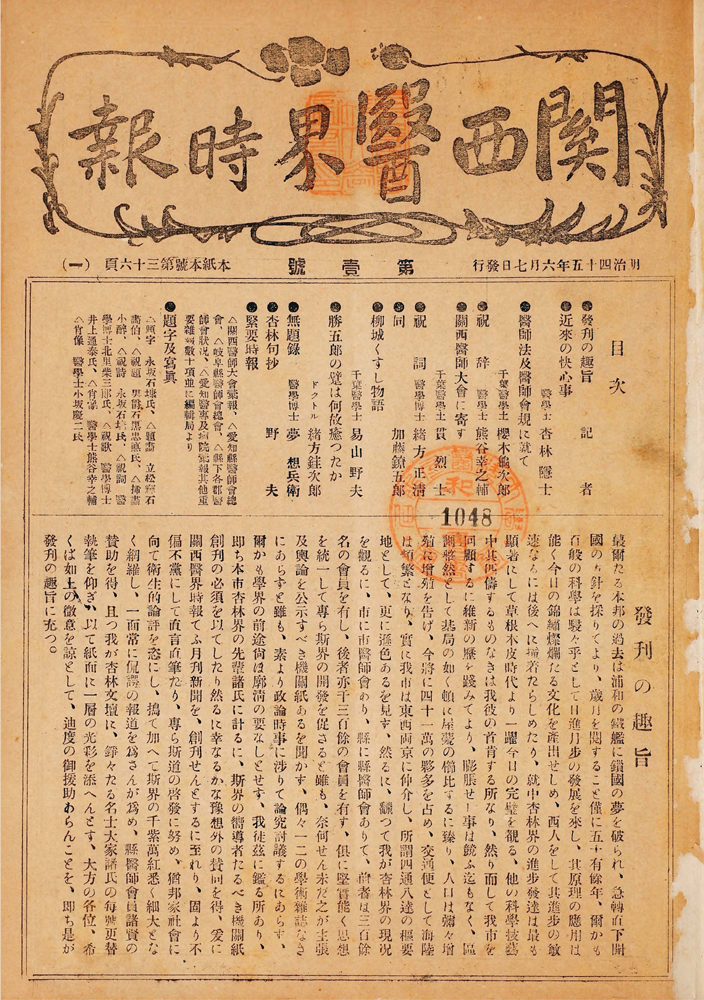 関西醫界時報
明治四十五年六月七日發行
第壹號
本紙本號第三十六頁
(一)
目次
●發刊の趣旨 記者
●近來の快心事 醫學士 杏林隱士
●醫師法及醫師會規に就て
千葉醫學士 櫻木龜次郎
●祝辞 醫學士 熊谷幸之輔
●關西醫師大會に寄す
千葉醫學士 貫烈士
●祝詞 醫學博士 緒方正淸
●同 加藤鐐五郎
●柳城くすし物語
千葉醫學士 易山野夫
●勝五郎の躄は何故癒つたか
ドクトル 緒方銈次郎
●無題錄 醫學博士 夢想兵衛
●杏林句抄 野夫
●緊要時報
△關西醫師大會彙報、△愛知縣醫師會總
會、△岐阜縣醫師會總會、△縣下各郡醫
師會狀況、△愛知醫專及病院彙報其他重
要雜報數十項並に編輯局より
●題字及寫眞
△題字 永坂石埭氏、△題畵 立松
畵伯、△祝題 男爵石黑忠悳氏、△挿畵
小醉、△祝詩 永坂石埭氏、△祝詞 醫
學博士北里柴三郎氏、△祝歌 醫學博士
井上通泰氏、△肖像 醫學士熊谷幸之輔
△肖像 醫學士小坂慶二氏
1048
發刊の趣旨
蕞爾たる本邦の過去は浦和の鐵艦に鎖國の夢を破られ、急轉直下開
國の方針を採りてより、歲月を閲すること僅に五十有餘年、爾かも
百般の科學は駸々乎として日進月步の發展を來し、其原理の應用は
能く今日の錦繡燦爛たる文化を產出せしめ、西人をして其進步の敏
速なるには後へに撞着たらしめたり、就中杏林界の進步發達は最も
顯著にして草根木皮時代より一躍今日の完璧を觀る、他の科學技藝
中其匹儔するものなきは我彼の首肯する所なり、然り而して我市を
回顧するに維新の歷を踐みてより、膨脹せし事は饒ふ迄もなく、區
劃整然として碁局の如く頓に屋甍の櫛比するに臻り、人口は彌々增
殖に增殖を告げ、今將に四十一萬の夥多を占め、交通便として海陸
は頻繁となり、實に我市は東西両京に仲介し、所謂四通八達の樞要
地として、更に遜色あるを見す、然るに、飜つて我が杏林界の現況
を觀るに、市に市醫師會あり、縣に縣醫師會ありて、前者は三百餘
名の會員を有し、後者亦千三百餘の會員を有す、俱に堅實能く思想
を統一して專ら斯界の開發を促さると雖も、奈何せん未だ之が主張
及輿論を公示すべき機關紙あるを聞かす、偶々一二の學術雜誌なき
にあらずと雖も、素より政論時事に涉りて論究討議するにあらす、
爾かも學界の前途尙ほ廓淸の要なしとせす、我徒玆に鑑る所あり、
即ち本市杏林界の先輩諸氏に計るに、斯界の嚮導者たるべき機關紙
創刊の必須を以てしたり然るに幸なるかな豫想外の賛同を得、爰に
關西醫界時報てふ月刊新聞を、創刊せんとするに至れり、固より不
偏不黨にして直言直筆たり、專ら斯道の啓發に努め、猶邦家社會に
向て衛生的論評を恣にし、搗て加へて斯界の千紫萬紅悉く細大とな
く網羅し、一面常に侃諤の報道を爲さんが爲め、縣醫師會員諸賢の
賛助を得、且つ我が杏林文壇に、錚々たる名士大家諸氏の每號更替
執筆を仰ぎ、以て紙面に一層の光彩を添へんとす、大方の各位、希
くば如上の徵意を諒として、迪度の御援助あらんことを、即ち是が
發刊の趣旨に充つ。